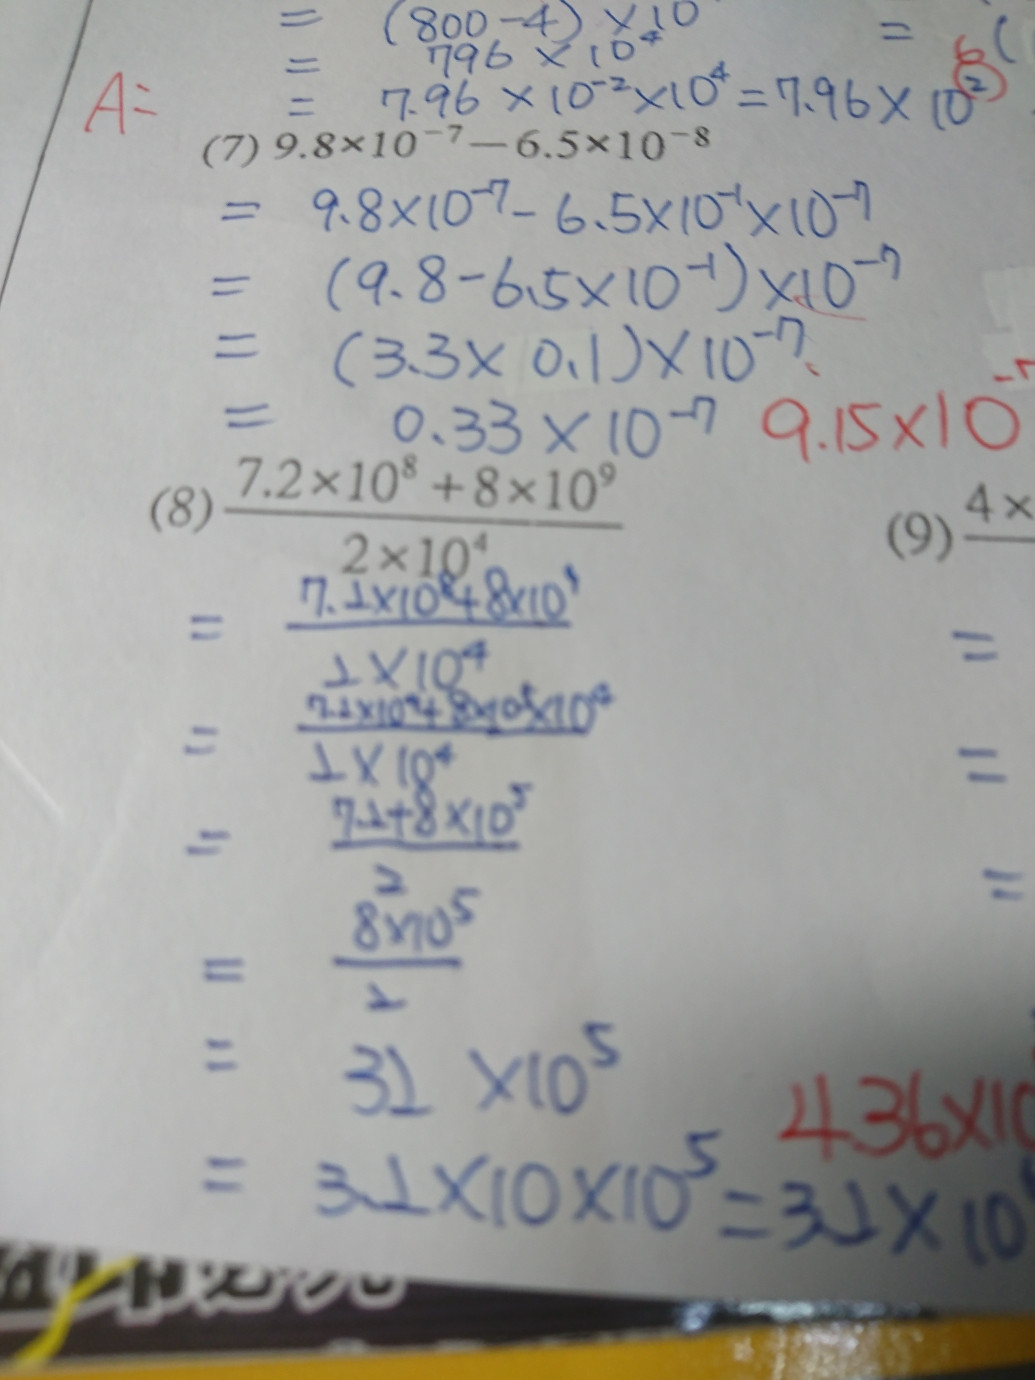 = (800-4) × 10
= 796 × 10⁴
A= = 7.96 × 10⁻² × 10⁴ = 7.96 × 10² 6
(7) 9.8×10⁻⁷−6.5×10⁻⁸
= 9.8×10⁻⁷ - 6.5×10⁻¹×10⁻⁷
= (9.8-6.5×10⁻¹)×10⁻⁷
= (3.3× 0.1)×10⁻⁷
= 0.33 × 10⁻⁷ 9.15×10⁻⁷
(8) 7.2×10⁸ +8×10⁹
2×10⁴
(9) 4×
= 7.2×10⁸+8×10⁹
2×10⁴
=
2×10⁴
= 7.2+8×10⁵
2
= 8×10⁵
2
= 32 ×10⁵
= 3.2×10×10⁵ = 3.2×10
4.36×10